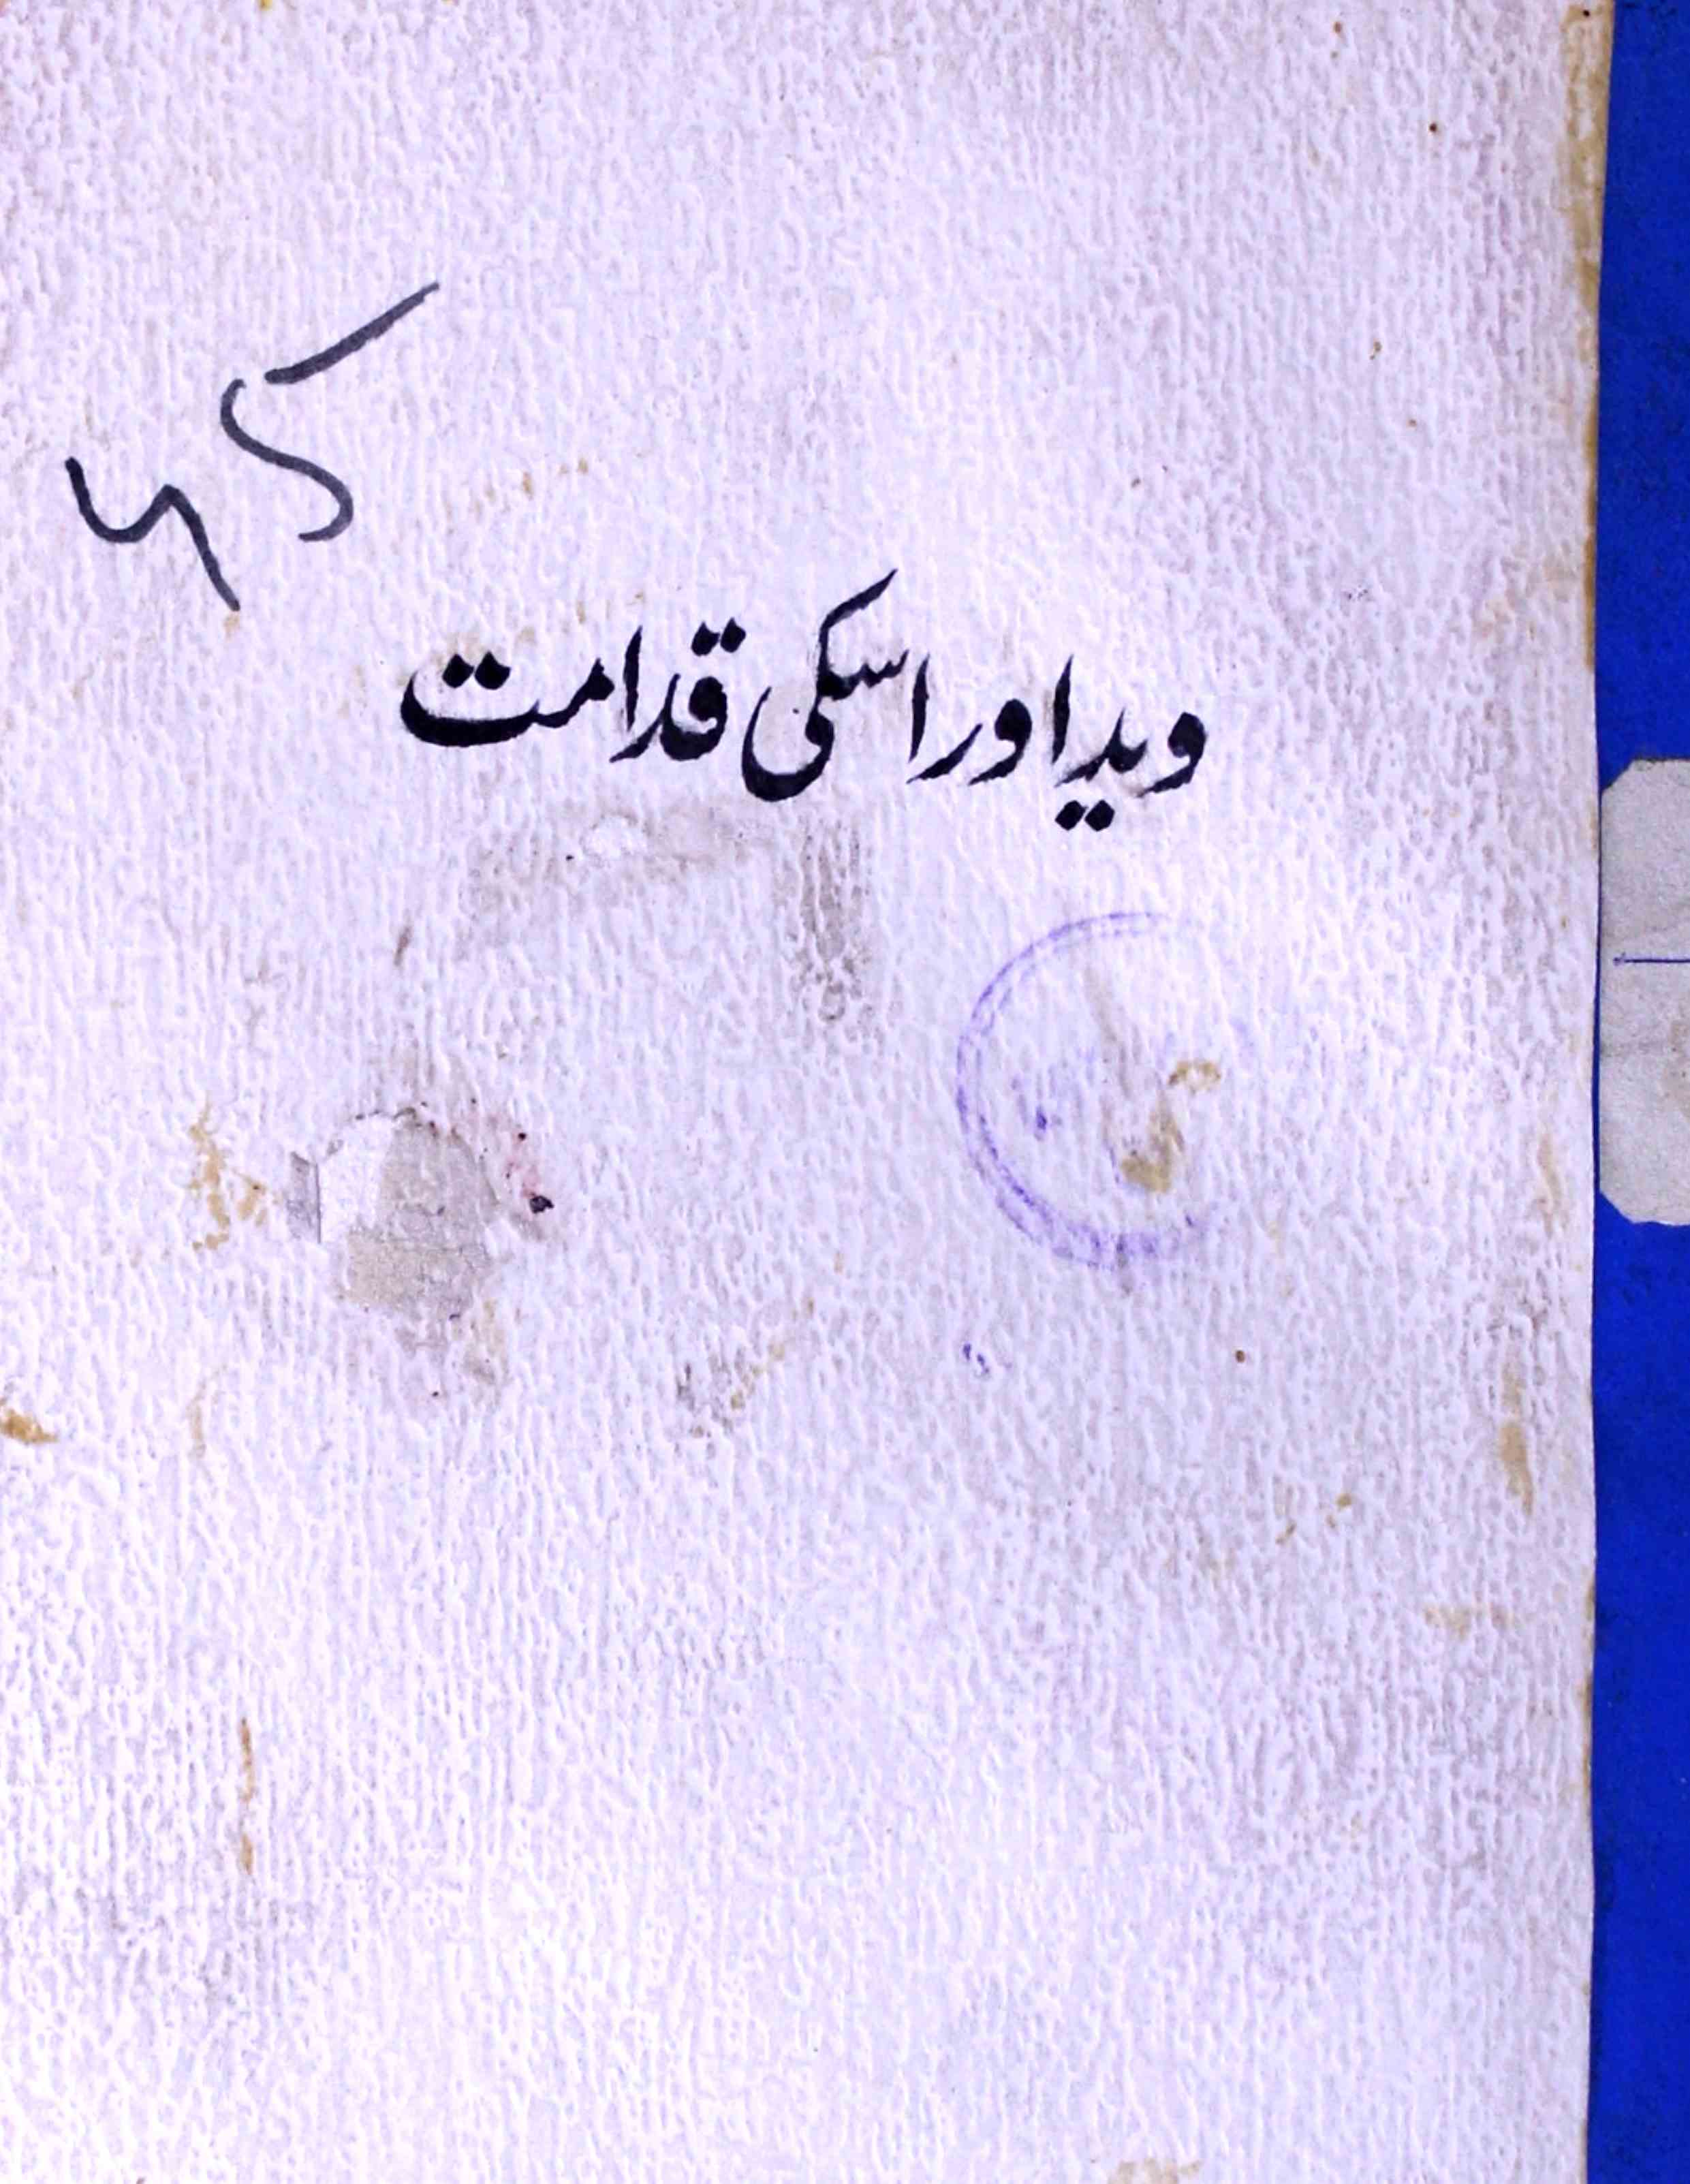 وید اور اسکی قدامت